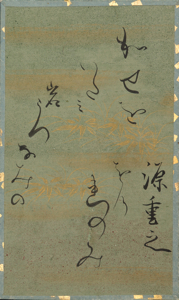 源重之
かせを
いたミ
岩うつ
なみの
をの
れのみ